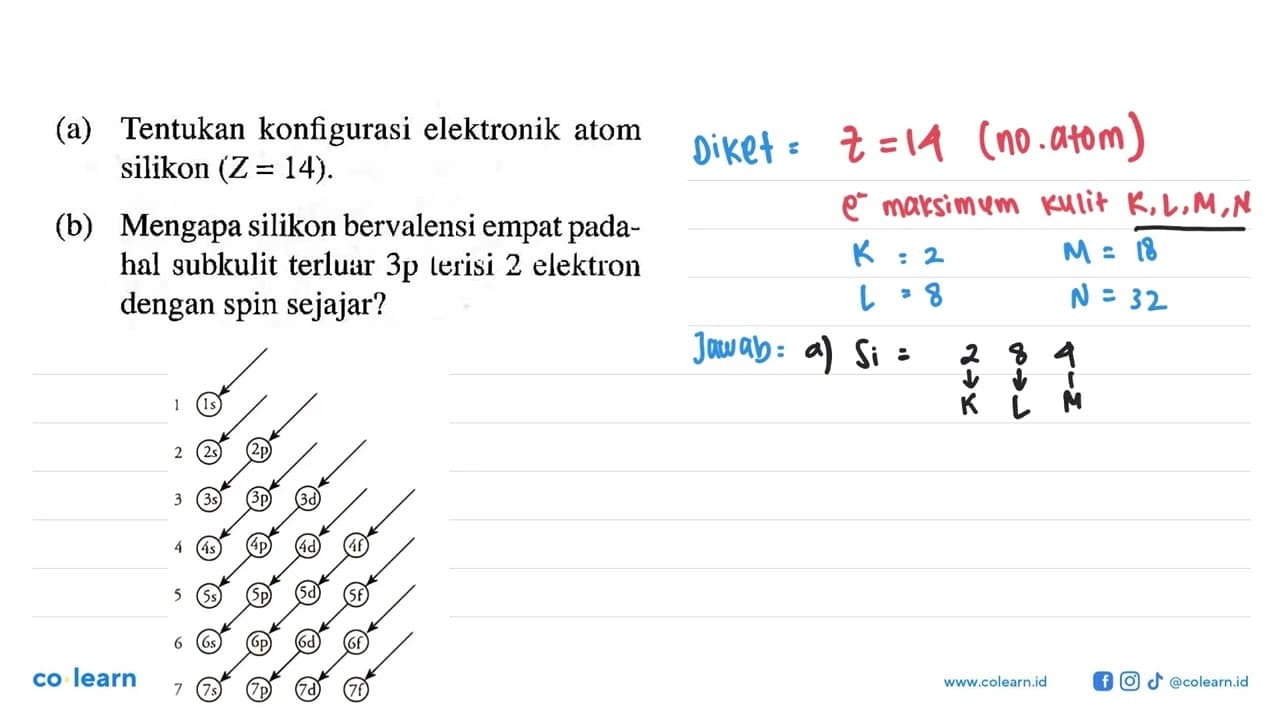 (a) Tentukan konfigurasi elektronik atom
silikon (Z = 14).
(b) Mengapa silikon bervalensi empat pada-
hal subkulit terluar 3p terisi 2 elektron
dengan spin sejajar?
Diket = Z = 14 (no. atom)
e⁻ maksimum kulit K, L, M, N
K : 2 M = 18
L = 8 N = 32
Jawab = a) Si = 2 8 4
K L M
1 1s
2 2s 2p
3 3s 3p 3d
4 4s 4p 4d 4f
5 5s 5p 5d 5f
6 6s 6p 6d 6f
7 7s 7p 7d 7f
co learn
www.colearn.id
@colearn.id